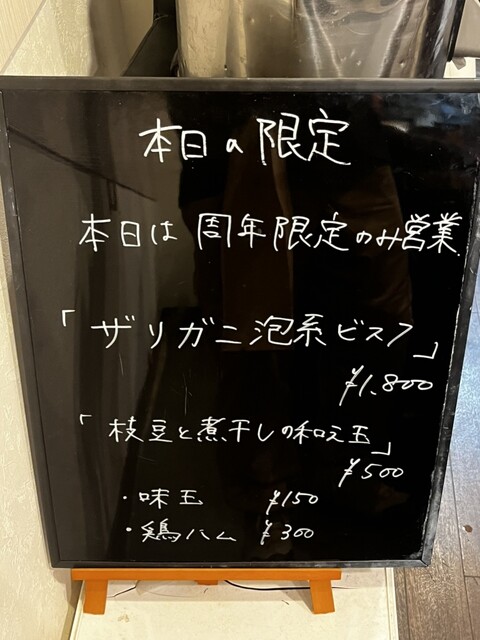 本日の限定
本日は周年限定のみ営業
「ザリガニ泡系ビスク」
¥1,800
「枝豆と煮干しの和え玉」
¥500
・味玉 ¥150
・鶏ハム ¥300